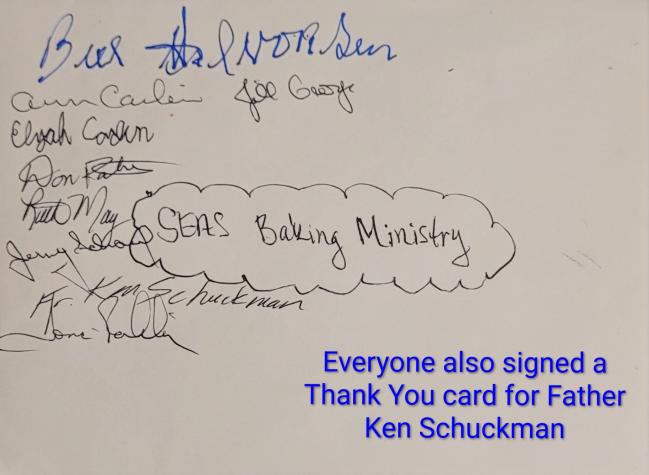 Bill Halvorsen
Ann Carlin Jill George
Elijah Carlin
Don
Ruth May
SEAS Baking Ministry
Jerry
Fr. Ken Schuckman
Everyone also signed a
Thank You card for Father
Ken Schuckman